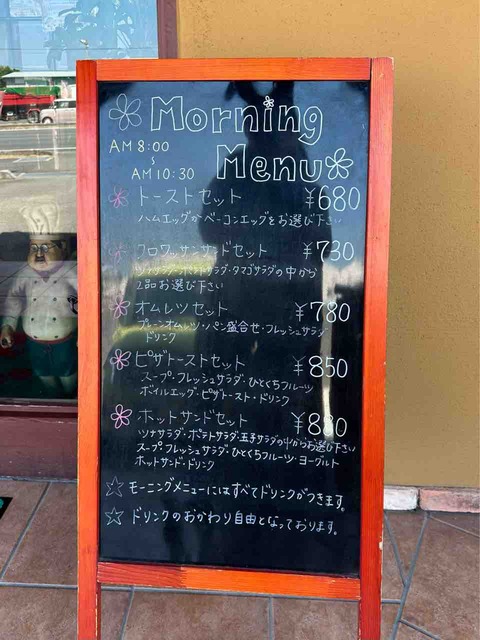 Morning
AM 8:00
~
AM 10:30
Menu
トーストセット ¥680
ハムエッグかベーコンエッグをお選び下さい
クロワッサンサンドセット ¥730
ツナサラダ・ポテトサラダ・タマゴサラダの中から
2品お選び下さい
オムレツセット ¥780
プレーンオムレツ・パン盛合せ・フレッシュサラダ
ドリンク
ピザトーストセット ¥850
スープ・フレッシュサラダ・ひとくちフルーツ
ボイルエッグ・ピザトースト・ドリンク
ホットサンドセット ¥880
ツナサラダ・ポテトサラダ・玉子サラダの中からお選び下さい
スープ・フレッシュサラダ・ひとくちフルーツ・ヨーグルト
ホットサンド・ドリンク
☆ モーニングメニューにはすべてドリンクがつきます。
☆ ドリンクのおかわり自由となっております。